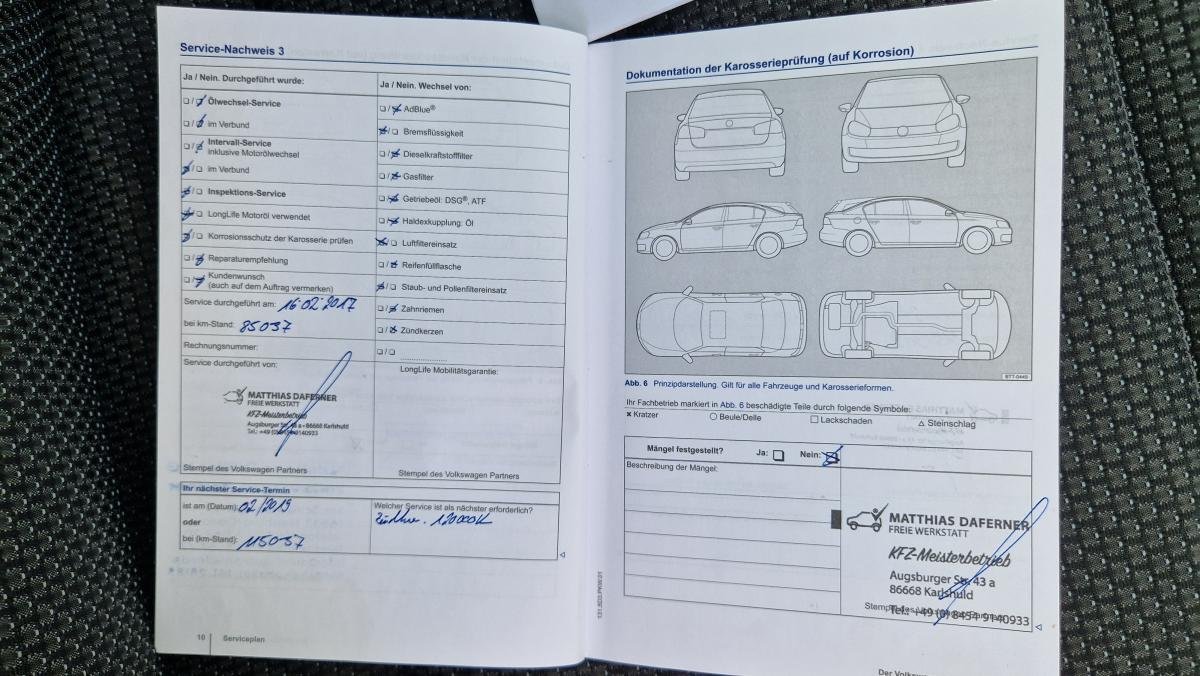 Service-Nachweis 3
Ja / Nein. Durchgeführt wurde:
☐/☒ Ölwechsel-Service
☐/☒ im Verbund
☐/☒ Intervall-Service
inklusive Motorölwechsel
☒/☐ im Verbund
☒/☐ Inspektions-Service
☒/☐ LongLife Motoröl verwendet
☒/☐ Korrosionsschutz der Karosserie prüfen
☐/☒ Reparaturempfehlung
☐/☒ Kundenwunsch
(auch auf dem Auftrag vermerken)
Service durchgeführt am: 16.02.2017
bei km-Stand: 85037
Rechnungsnummer:
Service durchgeführt von:
MATTHIAS DAFERNER
FREIE WERKSTATT
KFZ-Meisterbetrieb
Augsburger Str. 43 a • 86668 Karlshuld
Tel.: +49 (0) 8454 9140933
Stempel des Volkswagen Partners
Ja / Nein. Wechsel von:
☐/☒ AdBlue®
☒/☐ Bremsflüssigkeit
☐/☒ Dieselkraftstofffilter
☐/☒ Gasfilter
☐/☒ Getriebeöl: DSG®, ATF
☐/☒ Haldexkupplung: Öl
☒/☐ Luftfiltereinsatz
☐/☒ Reifenfüllflasche
☒/☐ Staub- und Pollenfiltereinsatz
☐/☒ Zahnriemen
☐/☒ Zündkerzen
☐/☐
LongLife Mobilitätsgarantie:
Stempel des Volkswagen Partners
Ihr nächster Service-Termin
ist am (Datum): 02/2019
oder
bei (km-Stand): 115037
Welcher Service ist als nächster erforderlich?
10 Serviceplan
Dokumentation der Karosserieprüfung (auf Korrosion)
BTT-0449
Abb. 6 Prinzipdarstellung. Gilt für alle Fahrzeuge und Karosserieformen.
Ihr Fachbetrieb markiert in Abb. 6 beschädigte Teile durch folgende Symbole:
× Kratzer ○ Beule/Delle □ Lackschaden △ Steinschlag
Mängel festgestellt? Ja: ☐ Nein: ☒
Beschreibung der Mängel:
MATTHIAS DAFERNER
FREIE WERKSTATT
KFZ-Meisterbetrieb
Augsburger Str. 43 a
86668 Karlshuld
Tel.: +49 (0) 8454 9140933
Der Volksw